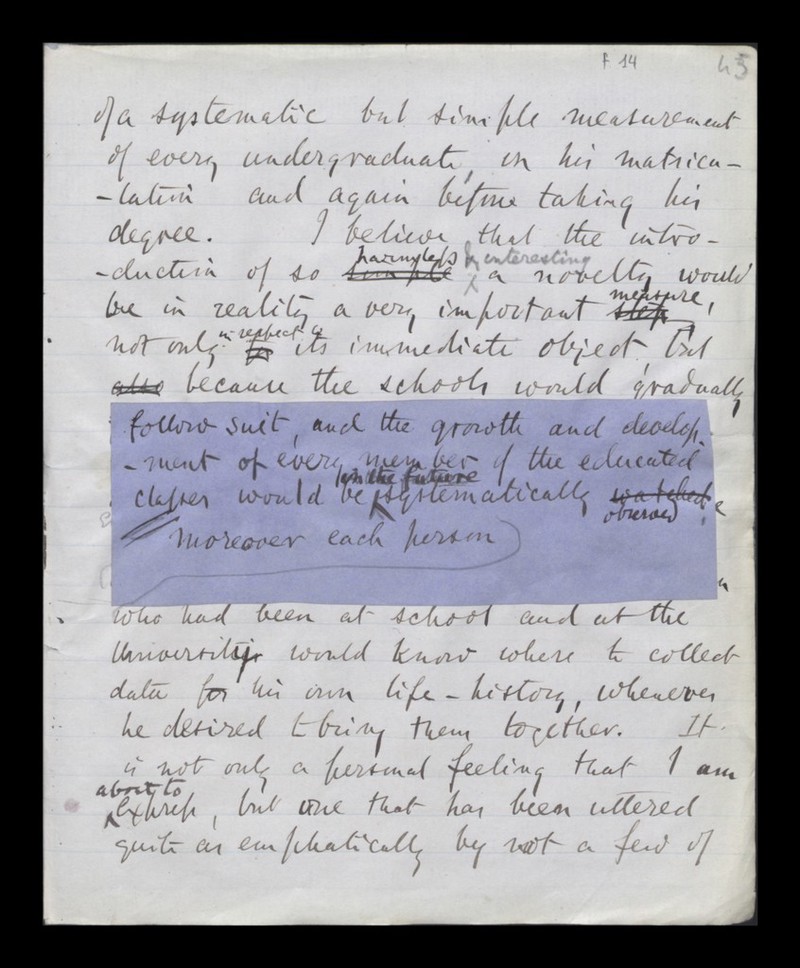 F 14 45
of a systematic but simple measurement
of every undergraduate, on his matricu-
-lation and again before taking his
degree. I believe that the intro-
harmless & interesting
-duction of so simple a novelty would
measure,
be in reality a very important step,
in respect to
not only for its immediate object, but
also because the schools would gradually
follow suit, and the growth and develop-
-ment of every member of the educated
in the future
classes would be systematically watched.
observed
Moreover each person
who had been at school and at the
University would know where to collect
data for his own life-history, whenever
he desired to bring them together. It
is not only a personal feeling that I am
about to
express, but one that has been uttered
quite as emphatically by not a few of